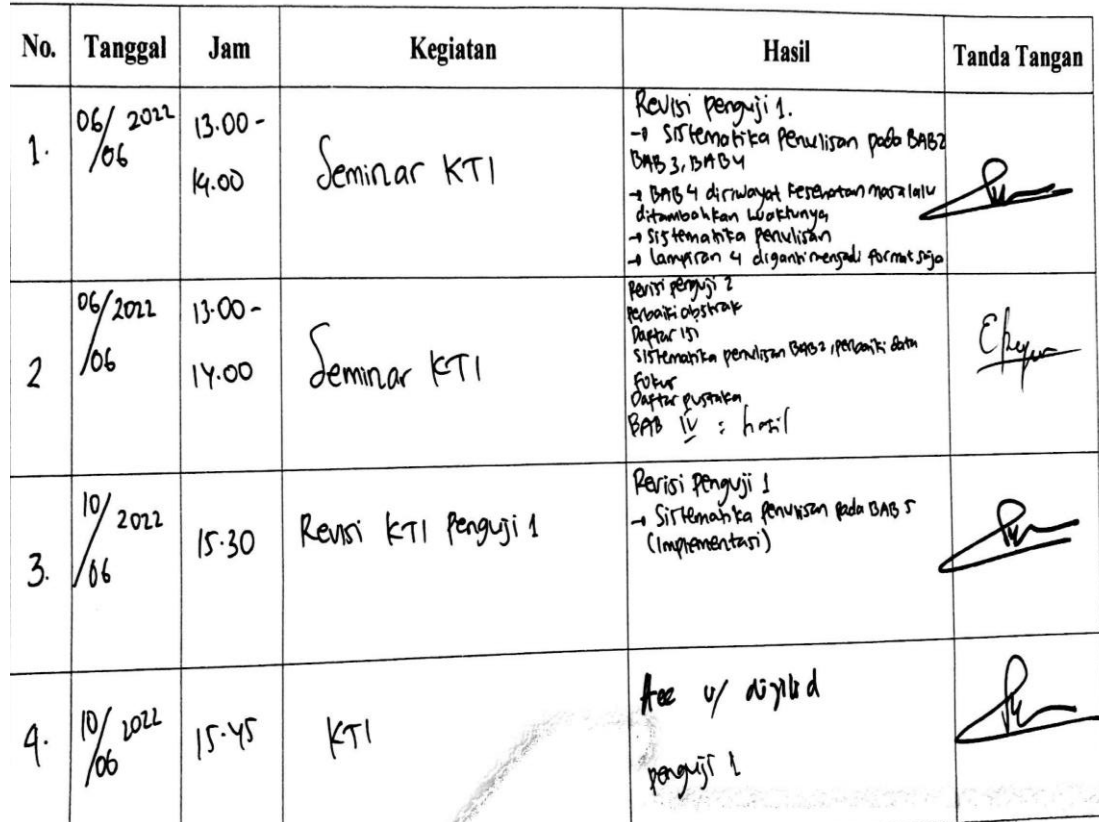 No. Tanggal Jam Kegiatan Hasil Tanda Tangan
1. 06/06 2022 13.00 - 14.00 Seminar KTI
Revisi penguji 1.
→ Sistematika Penulisan pada BAB2
BAB 3, BAB 4
→ BAB 4 diriwayat kesehatan masalalu
ditambahkan waktunya
→ Sistematika penulisan
→ Lampiran 4 diganti menjadi format saja
2 06/06 2022 13.00 - 14.00 Seminar KTI
Revisi penguji 2
Perbaiki abstrak
Daftar isi
Sistematika penulisan BAB2, perbaiki data
Fokus
Daftar pustaka
BAB IV : hasil
3. 10/06 2022 15.30 Revisi KTI Penguji 1
Revisi Penguji 1
→ Sistematika Penulisan pada BAB 5
(Implementasi)
4. 10/06 2022 15.45 KTI
Acc u/ dijilid
penguji 1